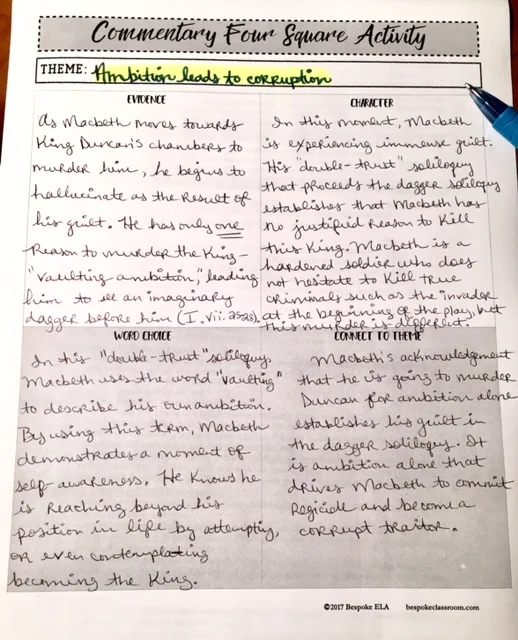 Commentary Four Square Activity
THEME: Ambition leads to corruption
EVIDENCE
As Macbeth moves towards
King Duncan's chambers to
murder him, he begins to
hallucinate as the result of
his guilt. He has only one
reason to murder the King-
"vaulting ambition," leading
him to see an imaginary
dagger before him (I.vii.25-28).
CHARACTER
In this moment, Macbeth
is experiencing immense guilt.
His "double-trust" soliloquy
that proceeds the dagger soliloquy
establishes that Macbeth has
no justified reason to kill
this King. Macbeth is a
hardened soldier who does
not hesitate to kill true
criminals such as the invader
at the beginning of the play, but
this murder is different.
WORD CHOICE
In his "double-trust" soliloquy,
Macbeth uses the word "vaulting"
to describe his own ambition.
By using this term, Macbeth
demonstrates a moment of
self-awareness. He knows he
is reaching beyond his
position in life by attempting,
or even contemplating
becoming the King.
CONNECT TO THEME
Macbeth's acknowledgement
that he is going to murder
Duncan for ambition alone
establishes his guilt in
the dagger soliloquy. It
is ambition alone that
drives Macbeth to commit
regicide and become a
corrupt traitor.
©2017 Bespoke ELA bespokeclassroom.com